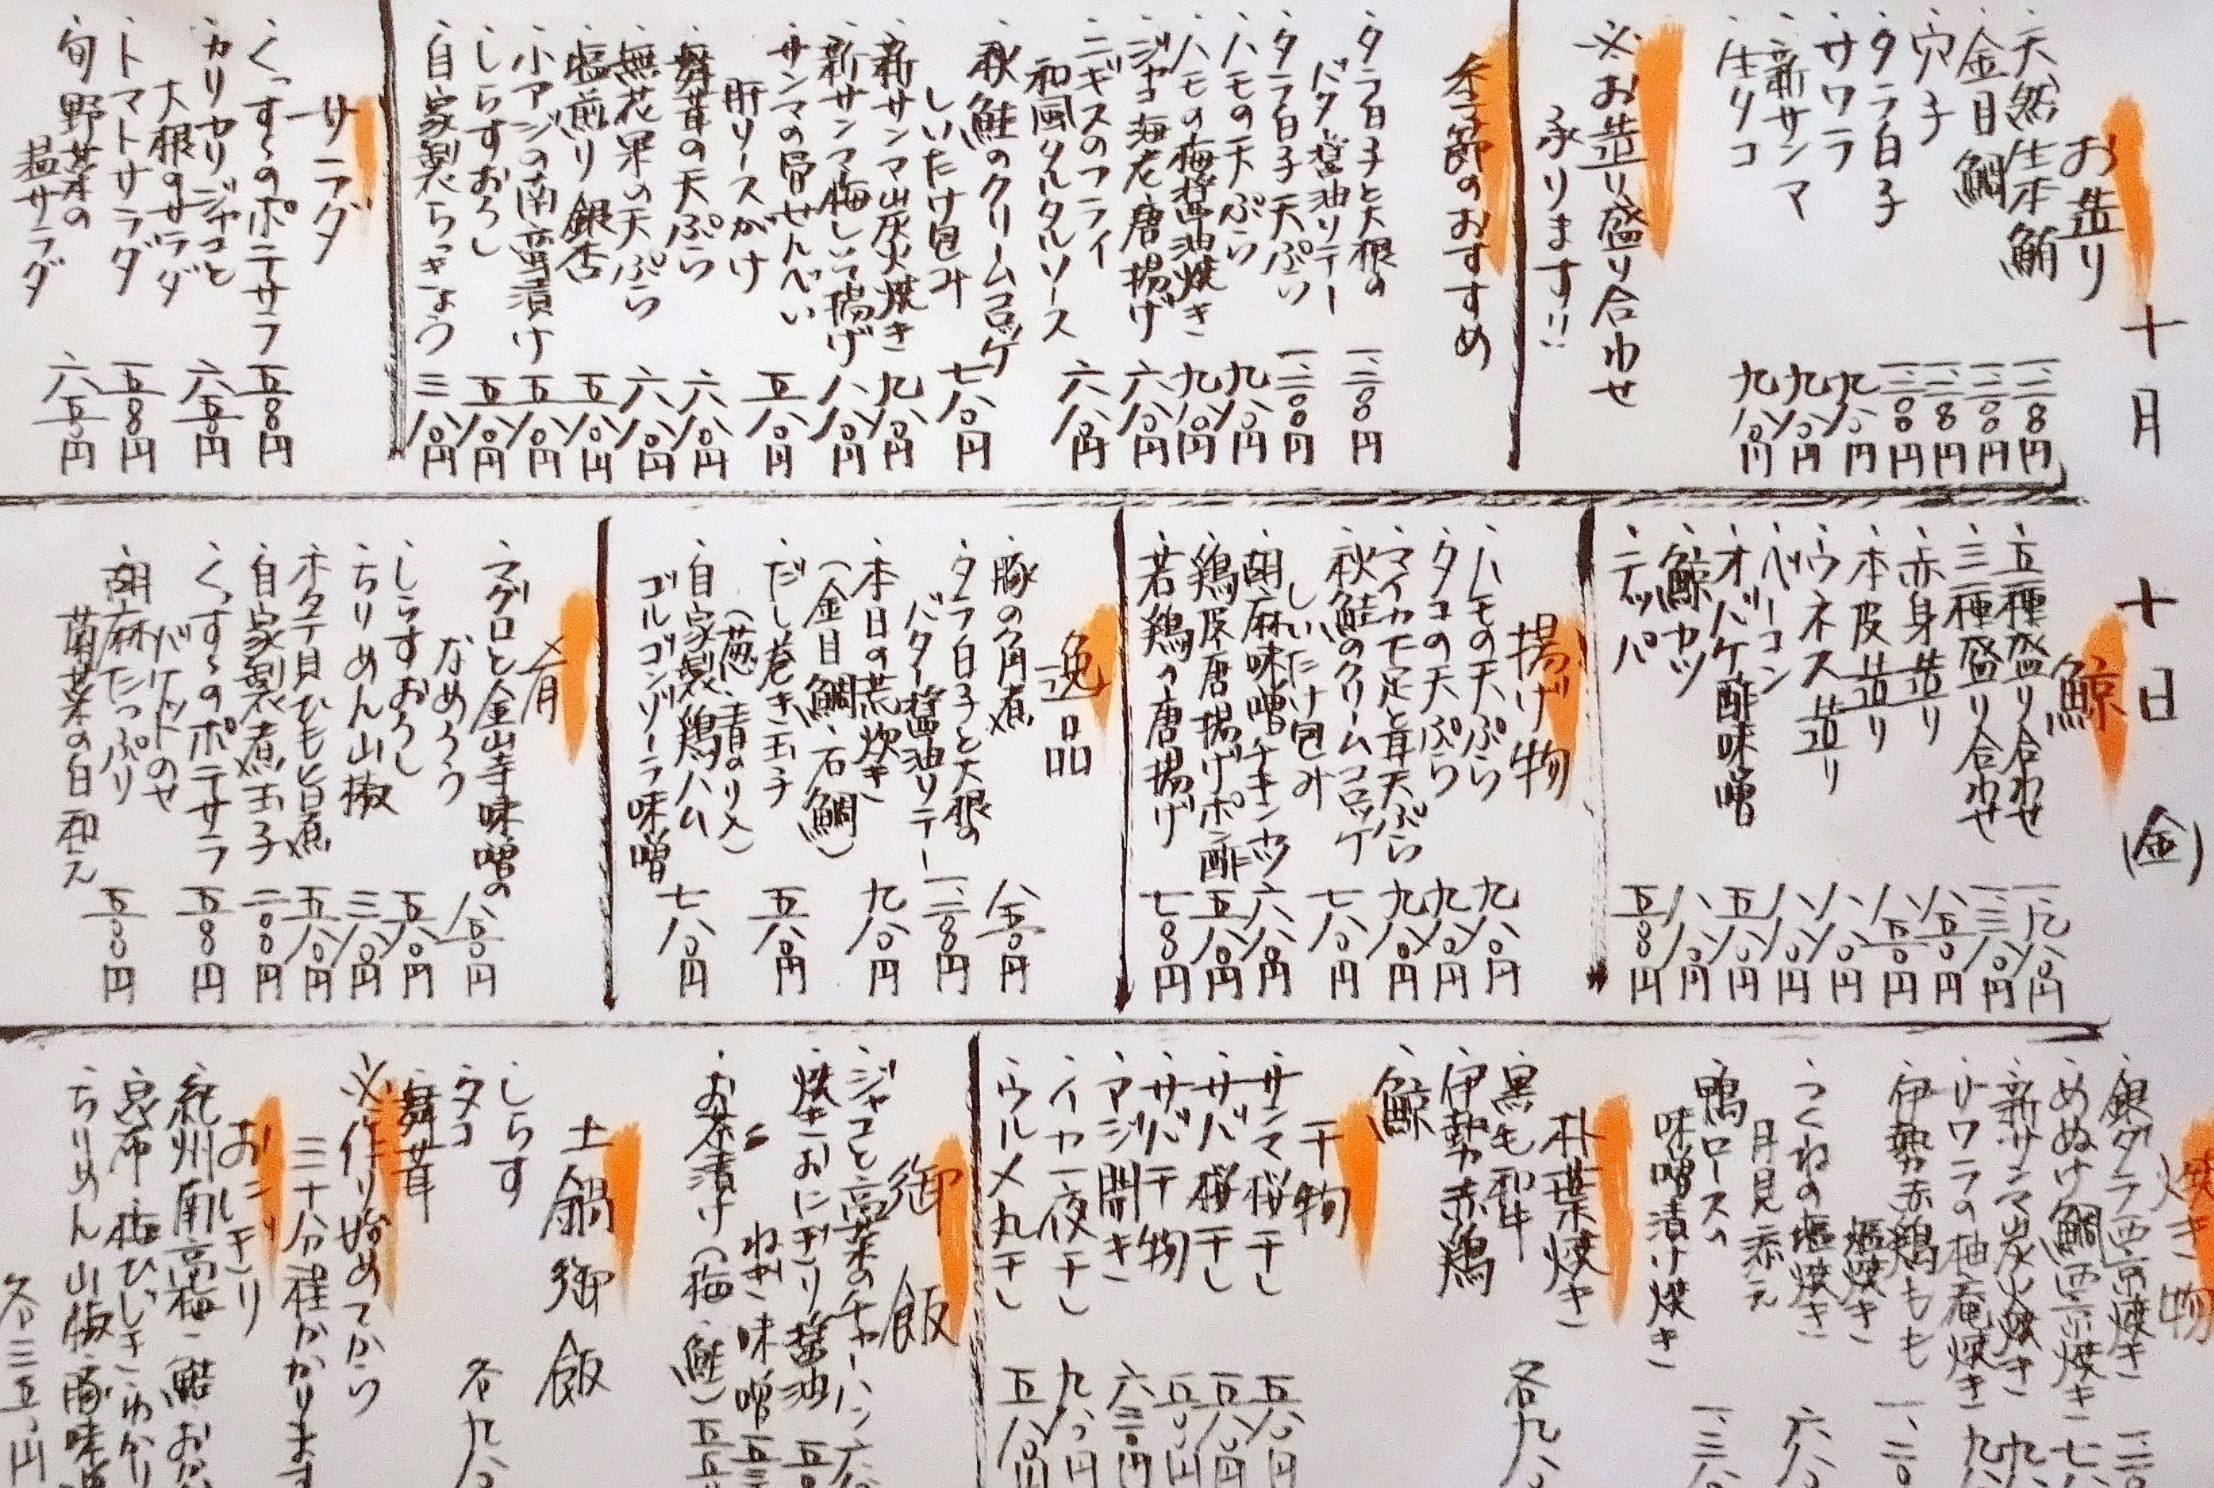 十月十日(金)
お造り
、天然生本鮪 一、二八〇円
、金目鯛 一、二〇〇円
、穴子 一、二八〇円
、タラ白子 一、二〇〇円
、サワラ 九八〇円
、新サンマ 九八〇円
、生タコ 九八〇円
※お造り盛り合わせ
承ります!!
季節のおすすめ
、タラ白子と大根の
バター醤油ソテー 一、二八〇円
、タラ白子天ぷら 一、二〇〇円
、ハモの天ぷら 九八〇円
、ハモの梅醤油焼き 九八〇円
、ジャコ海老唐揚げ 六八〇円
、ニギスのフライ
和風タルタルソース 六八〇円
、秋鮭のクリームコロッケ
しいたけ包み 七八〇円
、新サンマ炭火焼き 九八〇円
、新サンマ梅しそ揚げ 八八〇円
、サンマの骨せんべい
肝ソースがけ 五八〇円
、舞茸の天ぷら 六八〇円
、無花果の天ぷら 六八〇円
、塩煎り銀杏 五八〇円
、小アジの南蛮漬け 五八〇円
、しらすおろし 五八〇円
、自家製らっきょう 三八〇円
サラダ
、くっすぅのポテサラ 五八〇円
、カリカリジャコと
大根のサラダ 六五〇円
、トマトサラダ 五八〇円
、旬野菜の
温サラダ 六五〇円
鯨
、五種盛り合わせ 一、九八〇円
、三種盛り合わせ 一、三八〇円
、赤身造り 八五〇円
、本皮造り 八五〇円
、ウネス造り 八八〇円
、ベーコン 八八〇円
、オバケ酢味噌 五八〇円
、鯨カツ 八八〇円
、テッパ 五八〇円
揚げ物
、ハモの天ぷら 九八〇円
、タコの天ぷら 九八〇円
、マイカ下足と茸天ぷら 九八〇円
、秋鮭のクリームコロッケ
しいたけ包み 七八〇円
、胡麻味噌チキンカツ 六八〇円
、鶏皮唐揚げポン酢 五八〇円
、若鶏の唐揚げ 七八〇円
逸品
、豚の角煮 八五〇円
、タラ白子と大根の
バター醤油ソテー 一、二八〇円
、本日の荒炊き
(金目鯛、石鯛) 九八〇円
、だし巻き玉子
(葱、青のり) 五八〇円
、自家製鶏ハム
ゴルゴンゾーラ味噌 七八〇円
肴
、マグロと金山寺味噌の
なめろう 八五〇円
、しらすおろし 五八〇円
、ちりめん山椒 三八〇円
、ホタテ貝ひも旨煮 五八〇円
、自家製煮玉子 二〇〇円
、くっすぅのポテサラ
バケットのせ 五八〇円
、胡麻たっぷり
菊菜の白和え 五八〇円
焼き物
、銀ダラ西京焼き
、めぬけ鯛西京焼き
、新サンマ炭火焼き
、サワラの柚庵焼き
、伊勢赤鶏もも
塩焼き
、つくねの塩焼き
月見添え
、鴨ロースの
味噌漬け焼き
朴葉焼き
、黒毛和牛
、伊勢赤鶏
、鯨
干物
、サンマ桜干し 五八〇円
、サバ桜干し 五八〇円
、サバ干物 五八〇円
、アジ開き 六三〇円
、イカ一夜干し 九八〇円
、ウルメ丸干し 五八〇円
御飯
、ジャコと高菜のチャーハン
、焼きおにぎり 醤油
ねぎ味噌
、お茶漬け(梅、鮭)
土鍋御飯
、しらす
、タコ
、舞茸
※作り始めてから
三十分程かかります
おにぎり
、紀州南高梅、鮭、おか
、昆布、梅ひじき、わかり
、ちりめん山椒、豚味噌
各三五〇円